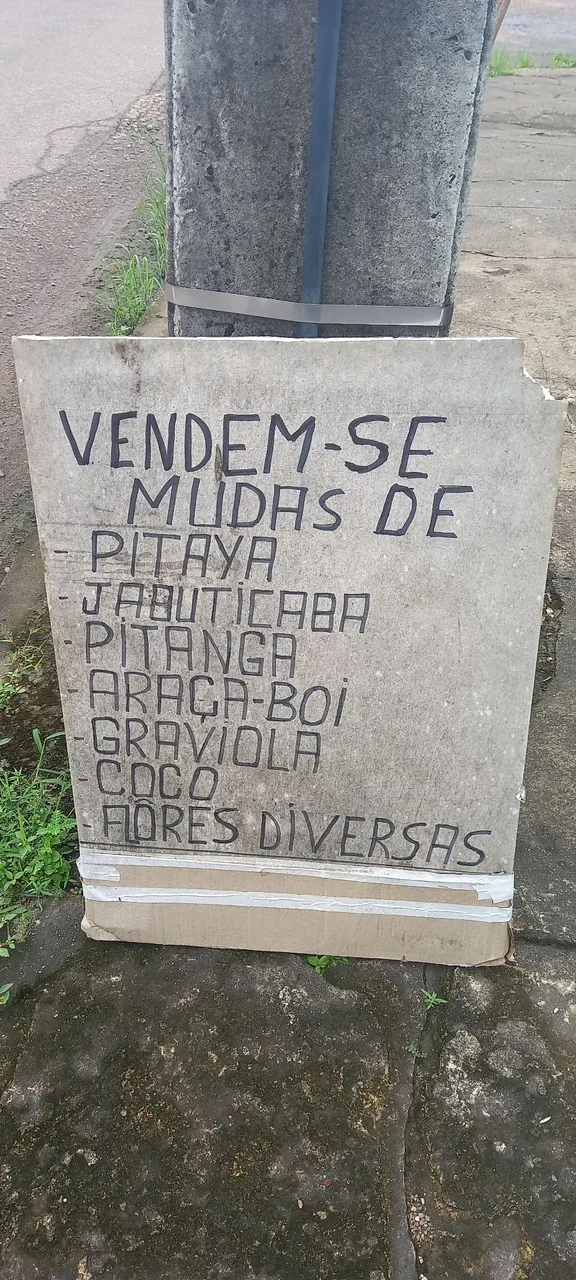 VENDEM-SE
MUDAS DE
- PITAYA
- JABUTICABA
- PITANGA
- ARAÇA-BOI
- GRAVIOLA
- COCO
- FLÔRES DIVERSAS